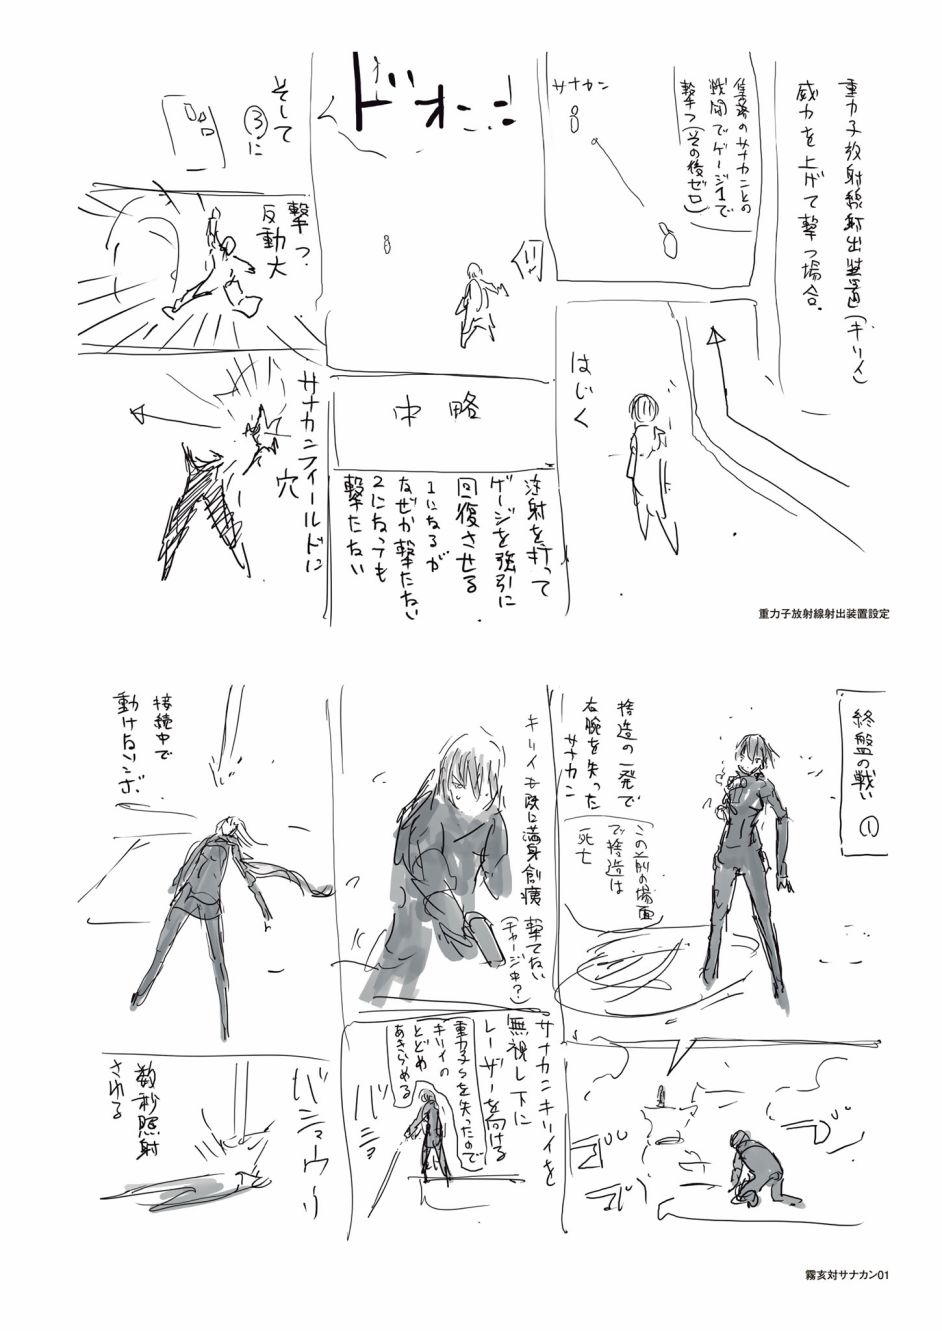 重力子放射線射出装置(キリイ)
威力を上げて撃つ場合。
集落のサナカンとの
戦闘でゲージ1で
撃つ(その後ゼロ)
サナカン
はじく
ドオーン
!!
中略
注射を打って
ゲージを強引に
回復させる
1になるが
なぜか撃たない
2になっても
撃たない
そして
③に
撃つ
反動大
サナカンフィールドに
穴
重力子放射線射出装置設定
終盤の戦い
①
捨造の一発で
右腕を失った
サナカン
この前の場面
で捨造は
死亡
キリイも既に満身創痍
撃てない
(チャージ中?)
接続中で
動けないシボ
サナカンキリイを
無視し下に
レーザーを向ける
重力子らを失ったので
キリイの
とどめ
あきらめる
バシュ
バシュウーッ
数秒照射
される
霧亥対サナカン01